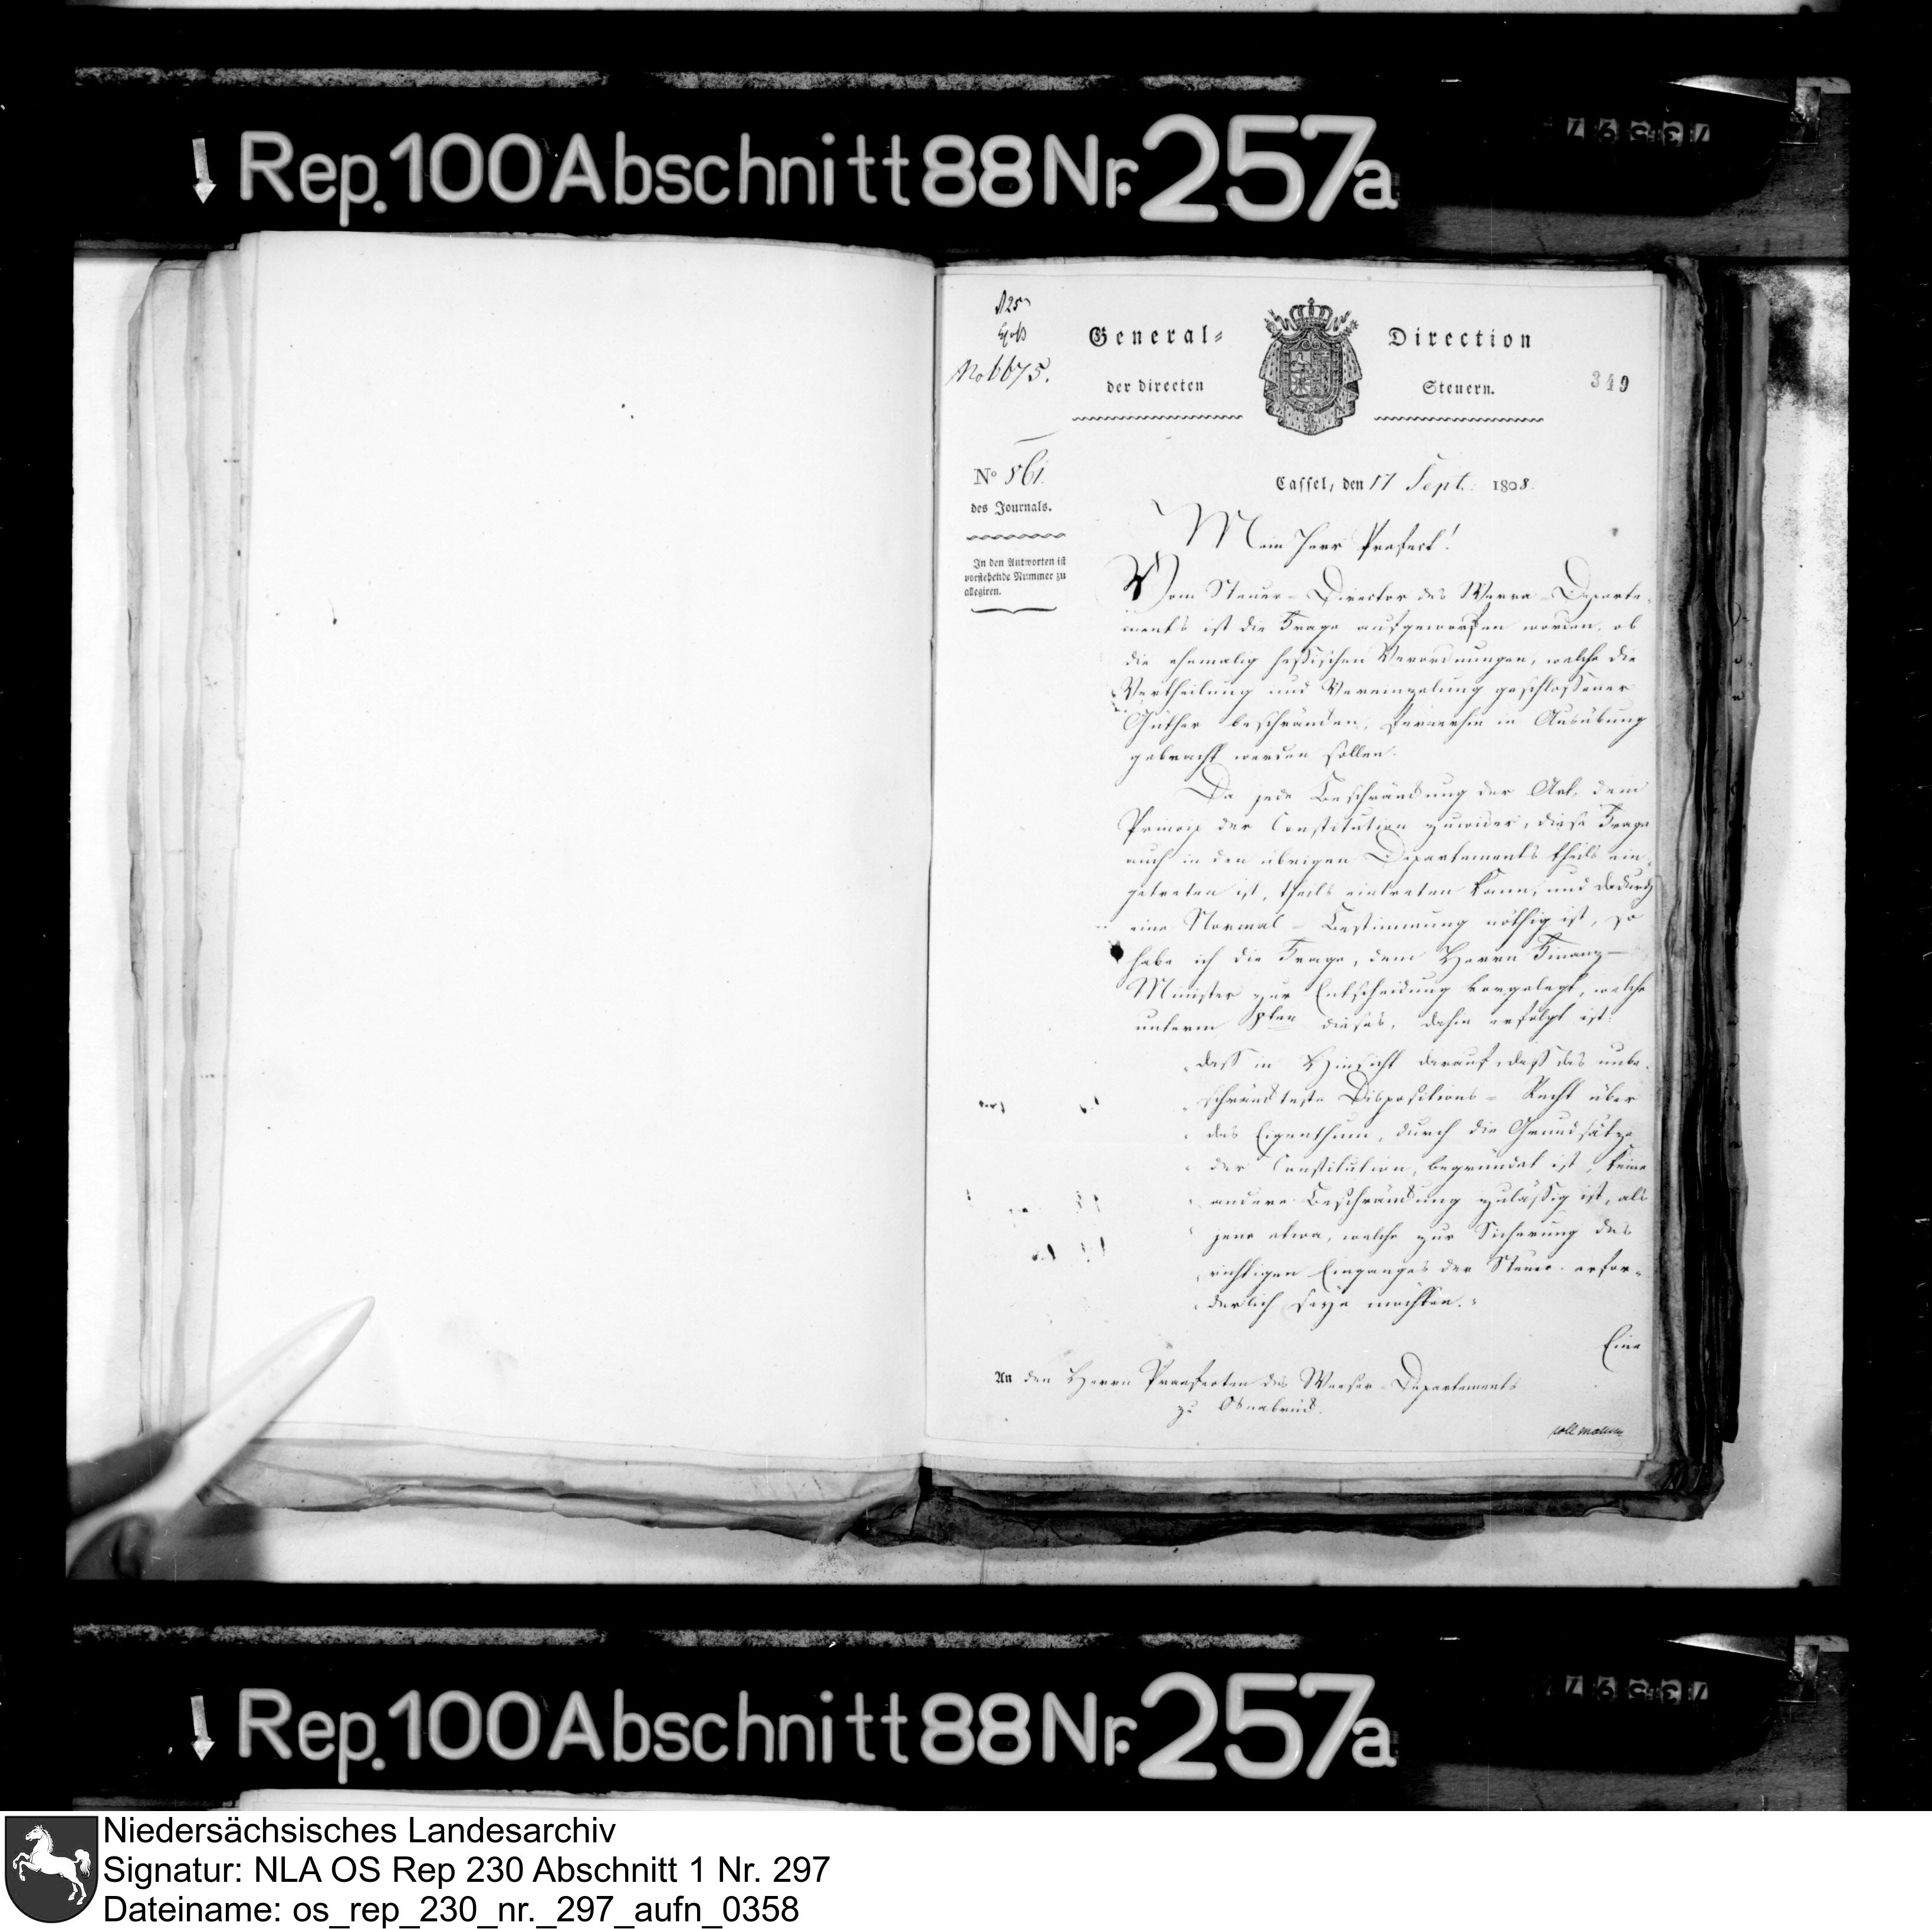 Rep. 100 Abschnitt 88 Nr. 257a
General-
Direction
der directen
Steuern.
349
No 6675.
No 561.
des Journals.
In den Antworten ist
vorstehende Nummer zu
allegiren.
Cassel, den 17 Sept. 1808.
Mein Herr Präfect!
Vom Steuer-Director des Werra-Departe-
ments ist die Frage aufgeworfen worden, ob
die ehemalig heßischen Verordnungen, welche die
Vertheilung und Vereinzelung geschloßener
Güther beschränken, fernerhin in Ausübung
gebracht werden sollen.
Da jede Beschränkung der Art, dem
Princip der Constitution zuwider, diese Frage
auch in den übrigen Departements theils ein-
getreten ist, theils eintreten kann, und dadurch
eine Normal-Bestimmung nöthig ist, so
habe ich die Frage, dem Herrn Finanz-
Minister zur Entscheidung vorgelegt, welche
unterm 8ten dieses, dahin erfolgt ist:
„daß in Hinsicht darauf, daß das unbe-
„schränkteste Dispositions-Recht über
„das Eigenthum, durch die Grundsätze
„der Constitution, begründet ist, keine
„andere Beschränkung zuläßig ist, als
„jene etwa, welche zur Sicherung des
„richtigen Einganges der Steuer erfor-
„derlich seyn möchten.“
Eine
An den Herrn Praefecten des Weeser-Departements
zu Osnabrück.
Rep. 100 Abschnitt 88 Nr. 257a
Niedersächsisches Landesarchiv
Signatur: NLA OS Rep 230 Abschnitt 1 Nr. 297
Dateiname: os_rep_230_nr._297_aufn_0358